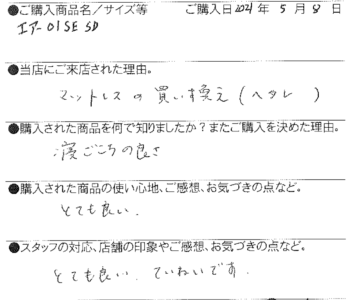 ●ご購入商品名/サイズ等 ご購入日2021年5月8日
エアー01SE SD
●当店にご来店された理由。
マットレスの買い換え(ヘタレ)
●購入された商品を何で知りましたか?またご購入を決めた理由。
寝ごこちの良さ
●購入された商品の使い心地、ご感想、お気づきの点など。
とても良い.
●スタッフの対応、店舗の印象やご感想、お気づきの点など。
とても良い. ていねいです.